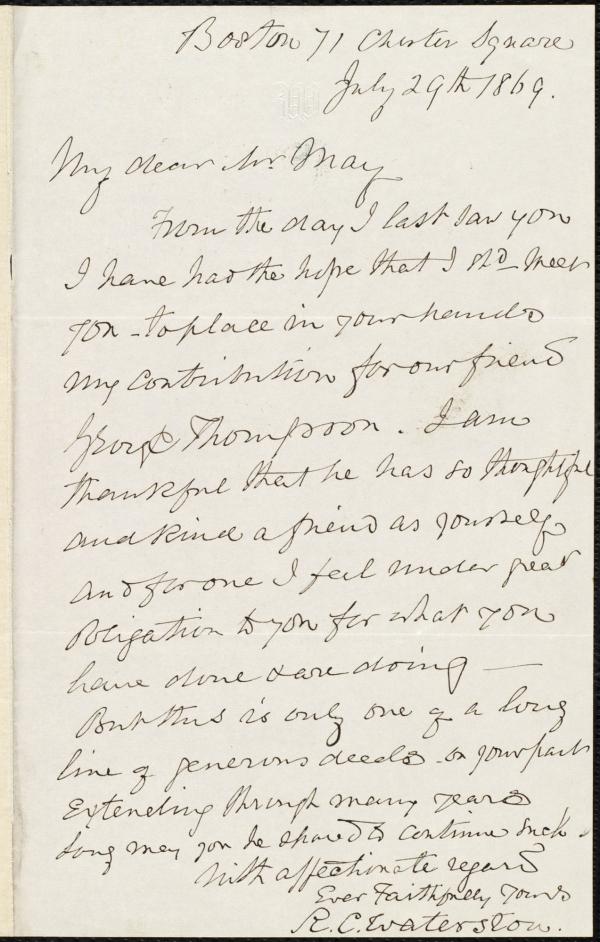 Boston 71 Chester Square
July 29th 1869.
My dear Mr. May
From the day I last saw you
I have had the hope that I shd meet
you - to place in your hands
my contribution for our friend
George Thompson. I am
thankful that he has so thoughtful
and kind a friend as yourself
and for one I feel under great
obligation to you for what you
have done & are doing —
But this is only one of a long
line of generous deeds - on your part
Extending through many years
Long may you be spared to continue such.
With affectionate regard
Ever Faithfully Yours
R. C. Waterston.